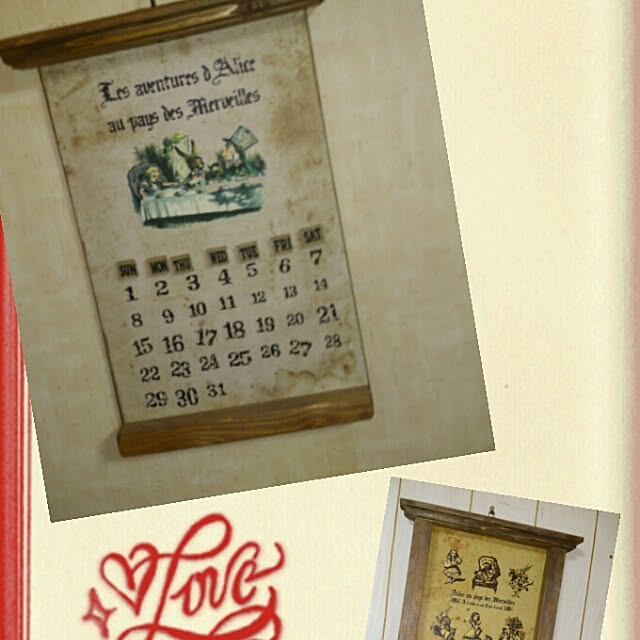 Les aventures d'Alice
au pays des Merveilles
SUN MON THU WED TUE FRI SAT
1 2 3 4 5 6 7
8 9 10 11 12 13 14
15 16 17 18 19 20 21
22 23 24 25 26 27 28
29 30 31
Love
Alice au pays des Merveilles